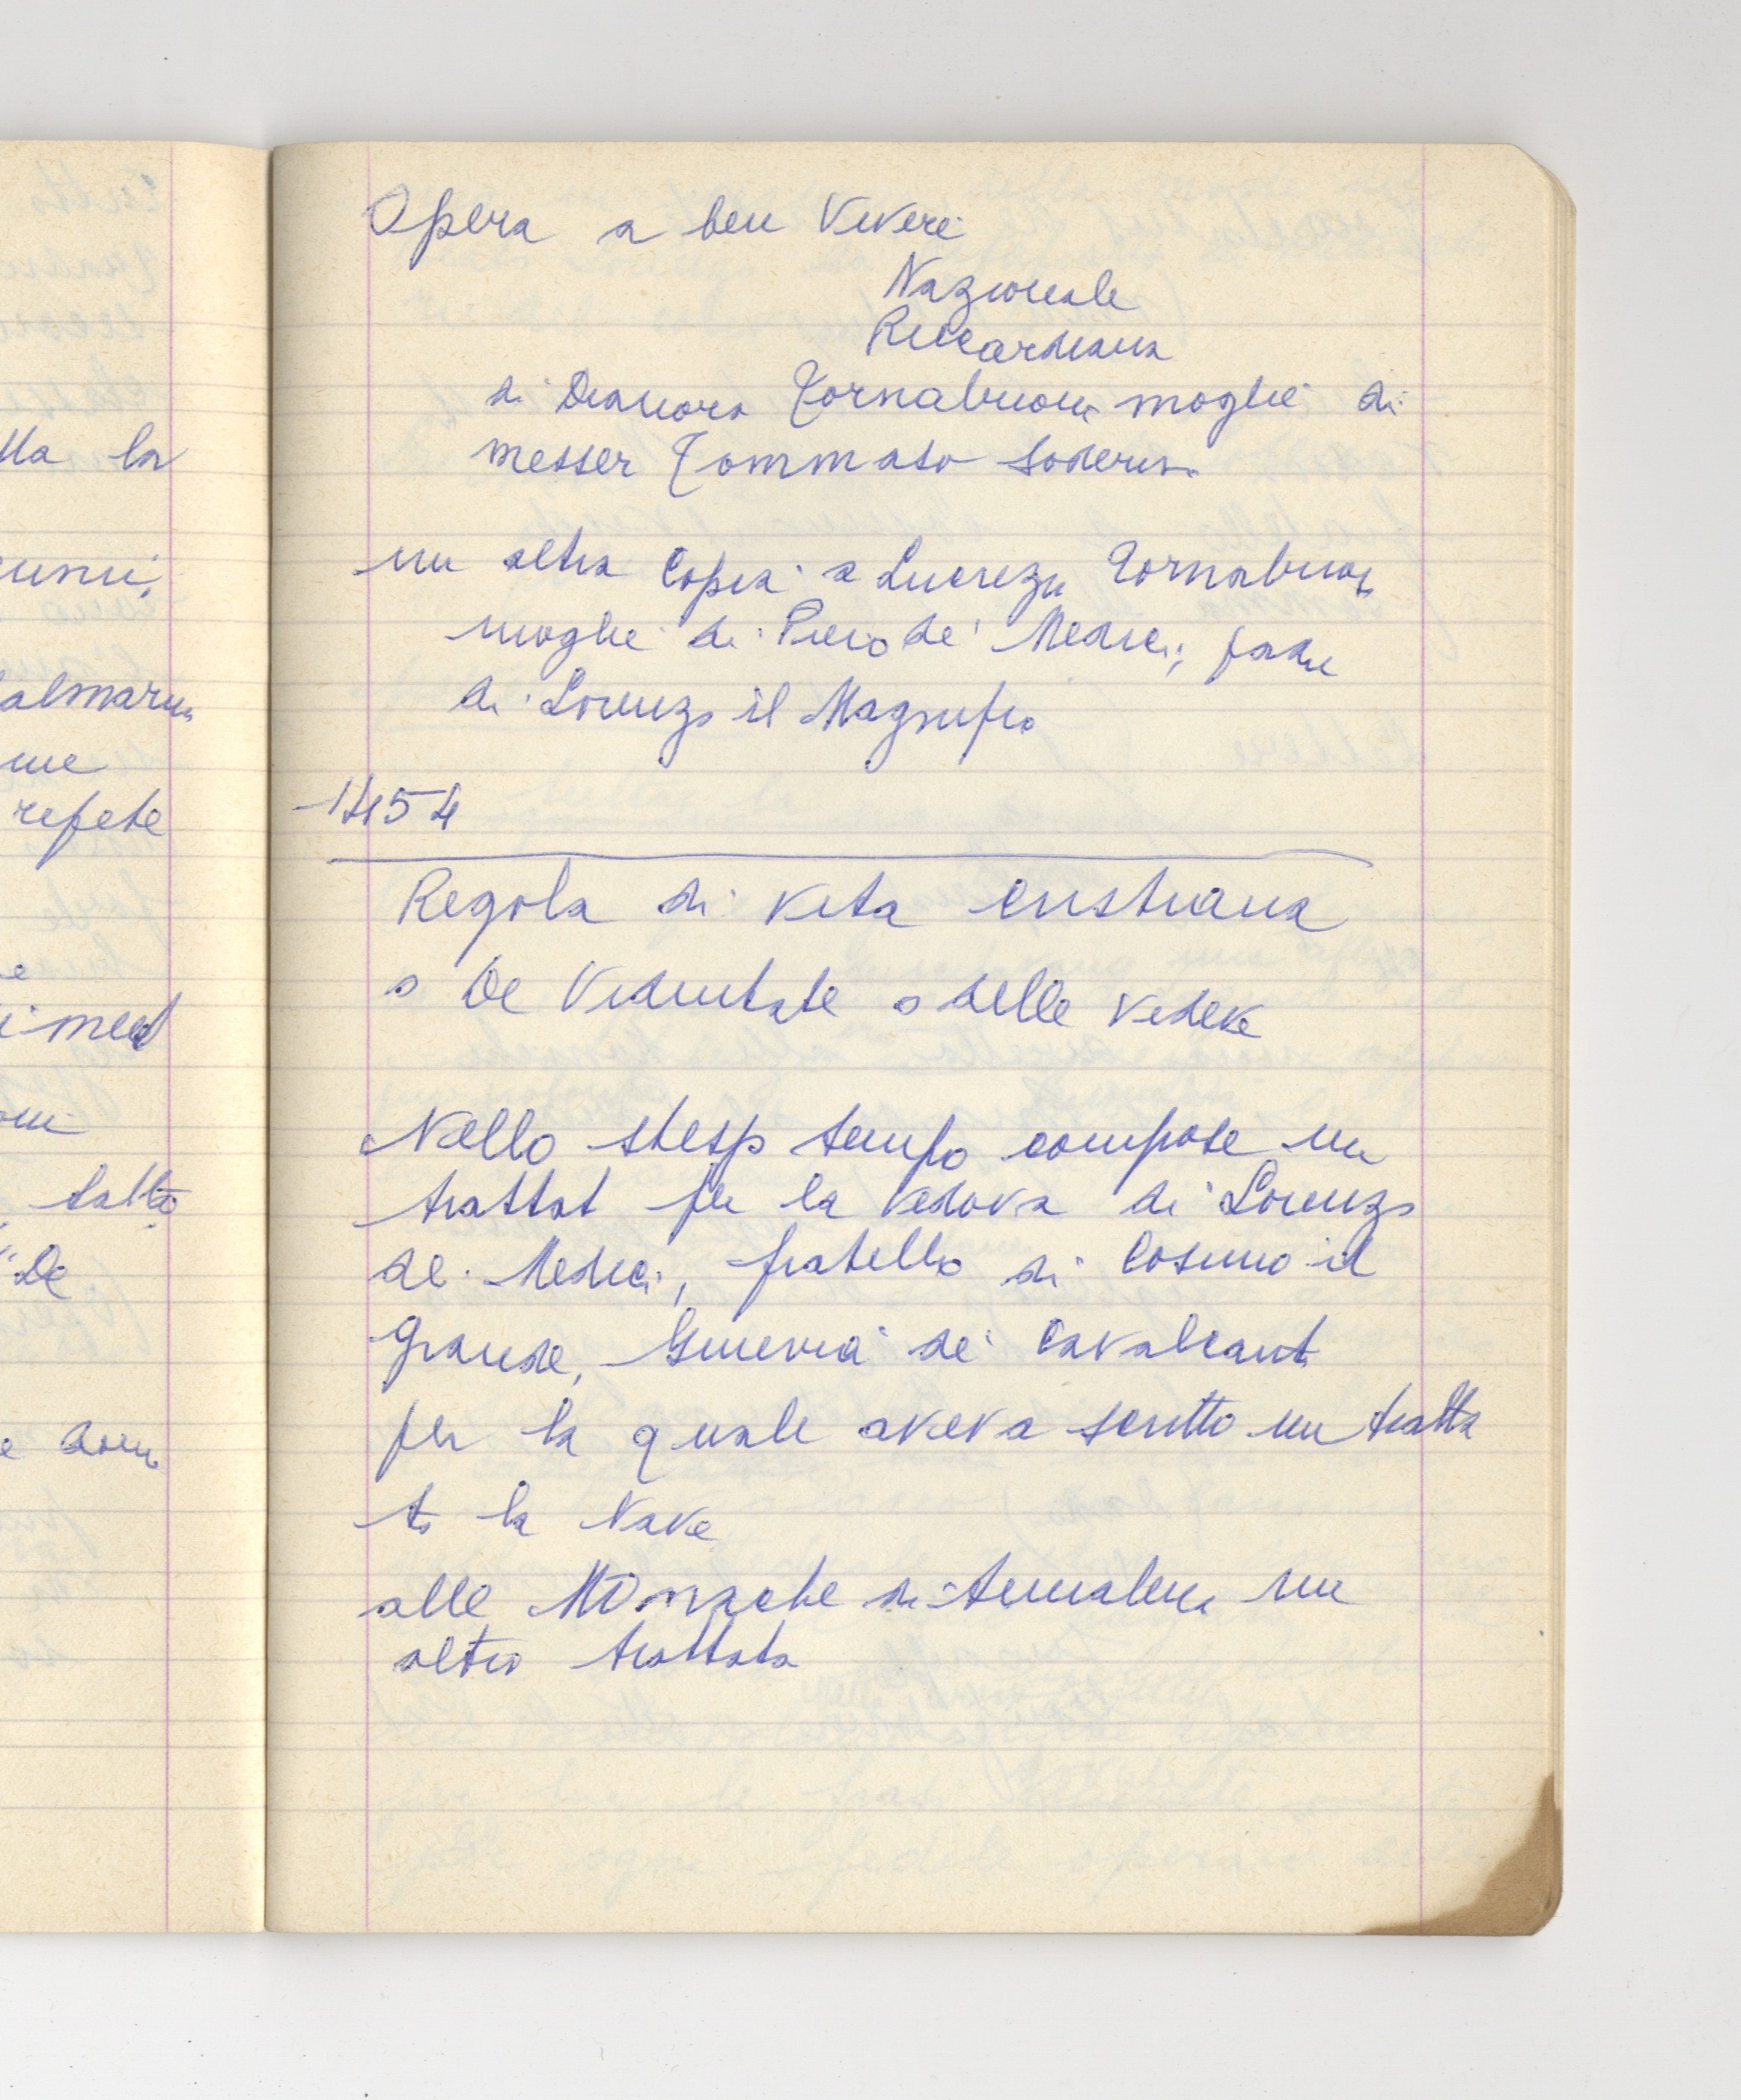 lla la
almarin
me
repete
e
i med
tratto
"De
Opera a ben Vivere
Nazionale
Riccardiana
di Dianora Tornabuoni moglie di
messer Tommaso Soderini
un altra Copia a Lucrezia Tornabuoni
moglie di Piero de' Medici, padre
di Lorenzo il Magnifico
1454
Regola di vita cristiana
o De Viduitate o delle vedove
Nello stesso tempo compose un
trattat per la vedova di Lorenzo
de Medici, fratello di Cosimo il
Grande, Ginevra de' Cavalcanti
per la quale aveva scritto un tratta
to la Nave
alle Monache di Annalena un
altro trattato